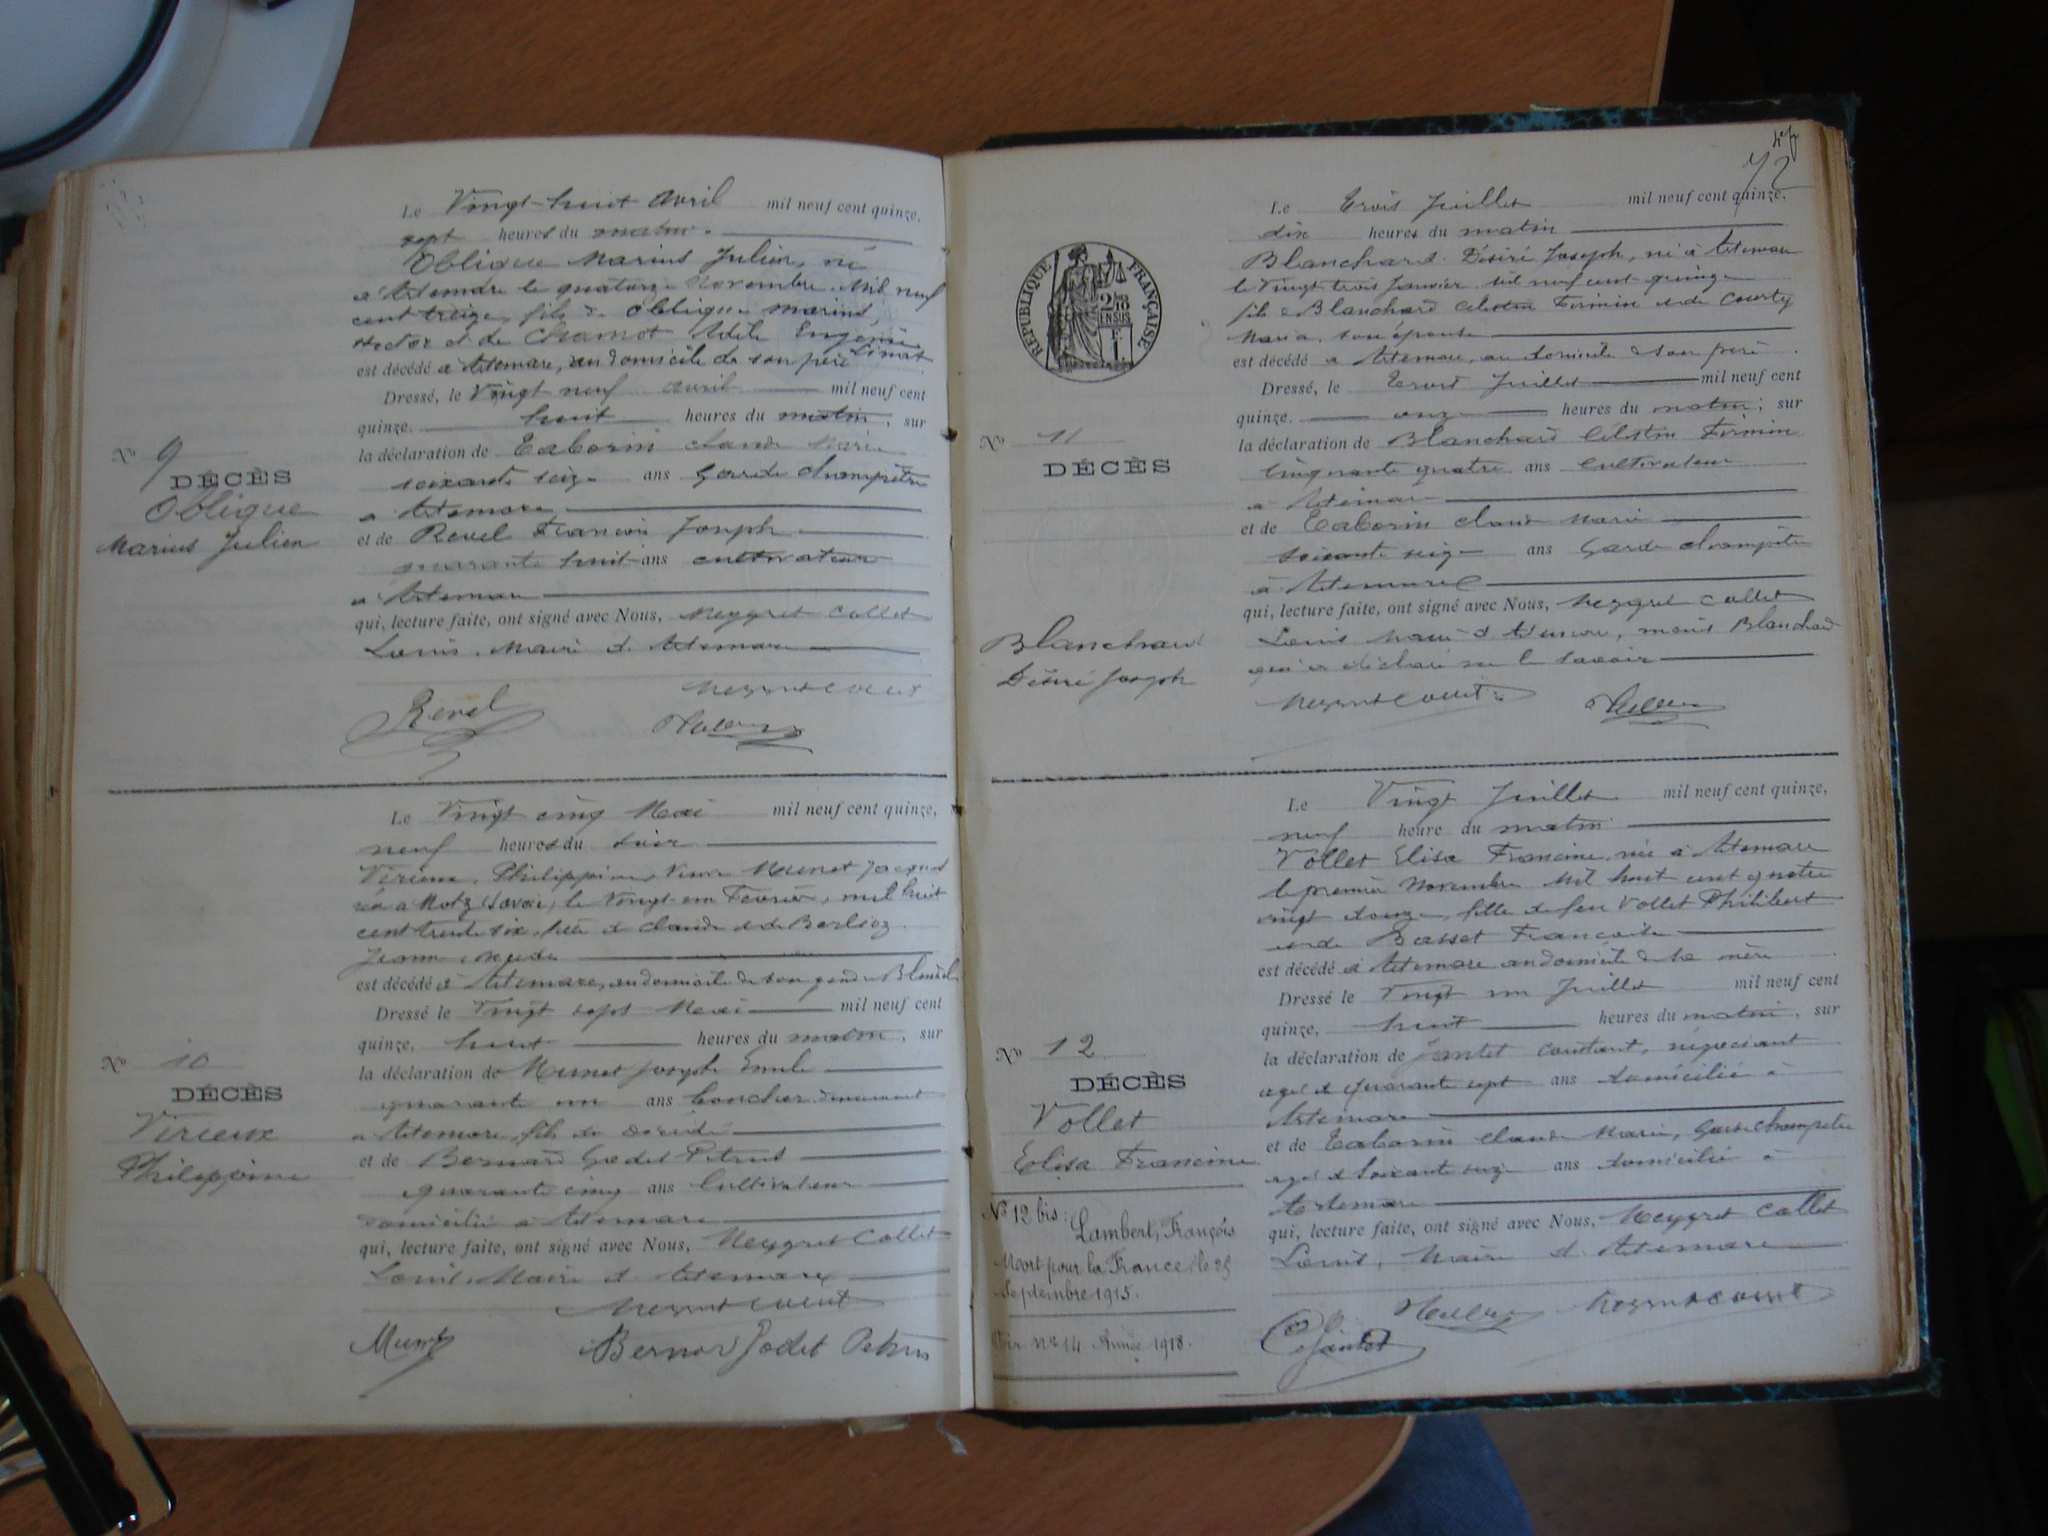 Le Vingt-huit Avril mil neuf cent quinze,
sept heures du matin.
Oblique Marius Julien, né
à Artemare le quatorze Novembre Mil neuf
cent treize, fils de Oblique Marius,
Hector et de Chamot Adèle Eugénie
est décédé à Artemare, au domicile de son père
Dressé, le Vingt neuf avril mil neuf cent
quinze. huit heures du matin, sur
la déclaration de Taborin Claude Marie
soixante seize ans Garde champêtre
à Artemare
et de Revel François Joseph
quarante huit ans cultivateur
à Artemare
qui, lecture faite, ont signé avec Nous, Meygret Collet
Louis, Maire d'Artemare
Revel
No 9
DÉCÈS
Oblique
Marius Julien
Le Vingt cinq Mai mil neuf cent quinze,
neuf heures du soir
Virieux, Philippine, veuve Munet Jacques
née à Motz Savoie, le Vingt un Février, mil huit
cent trente six, fille de Claude et de Berlioz
Jeanne
est décédé à Artemare, au domicile de son gendre
Dressé le Vingt sept Mai mil neuf cent
quinze, huit heures du matin, sur
la déclaration de Munet Joseph Emile
quarante un ans boucher demeurant
à Artemare, fils de
et de Bernard Godet Petrus
quarante cinq ans Cultivateur
domicilié à Artemare
qui, lecture faite, ont signé avec Nous, Meygret Collet
Louis, Maire d'Artemare
Munet Bernard Godet Petrus
No 10
DÉCÈS
Virieux
Philippine
72
RÉPUBLIQUE FRANÇAISE
Le Trois Juillet mil neuf cent quinze,
dix heures du matin
Blanchard Désiré Joseph, né à Artemare
le Vingt trois Janvier Mil neuf cent quinze
fils de Blanchard Célestin Firmin et de Courtey
Maria, son épouse
est décédé à Artemare, au domicile de son père
Dressé, le Trois Juillet mil neuf cent
quinze. onze heures du matin; sur
la déclaration de Blanchard Célestin Firmin
Cinquante quatre ans Cultivateur
à Artemare
et de Taborin Claude Marie
soixante seize ans Garde champêtre
à Artemare
qui, lecture faite, ont signé avec Nous, Meygret Collet
Louis Maire d'Artemare, moins Blanchard
qui a déclaré ne le savoir
No 11
DÉCÈS
Blanchard
Désiré Joseph
Le Vingt Juillet mil neuf cent quinze,
neuf heure du matin
Vollet Elisa Francine, née à Artemare
le premier Novembre Mil huit cent quatre
vingt douze, fille de feu Vollet Philibert
et de Basset Françoise
est décédé à Artemare au domicile de sa mère
Dressé le Vingt un Juillet mil neuf cent
quinze, huit heures du matin, sur
la déclaration de Jantet Constant, négociant
agé de Quarante sept ans domicilié à
Artemare
et de Taborin Claude Marie, Garde Champêtre
agé de Soixante seize ans domicilié à
Artemare
qui, lecture faite, ont signé avec Nous, Meygret Collet
Louis, Maire d'Artemare
Jantet
No 12
DÉCÈS
Vollet
Elisa Francine
No 12 bis:
Lambert, François
Mort pour la France, le 25
Septembre 1915.
Voir no 14 Année 1918.